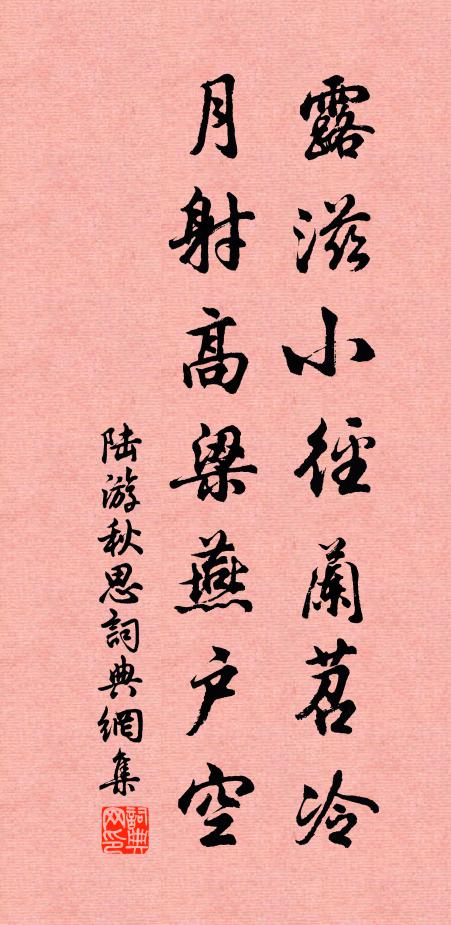 露滋小徑蘭苕冷
月射高梁燕户空
陆游秋思詞典網集
詞典网印